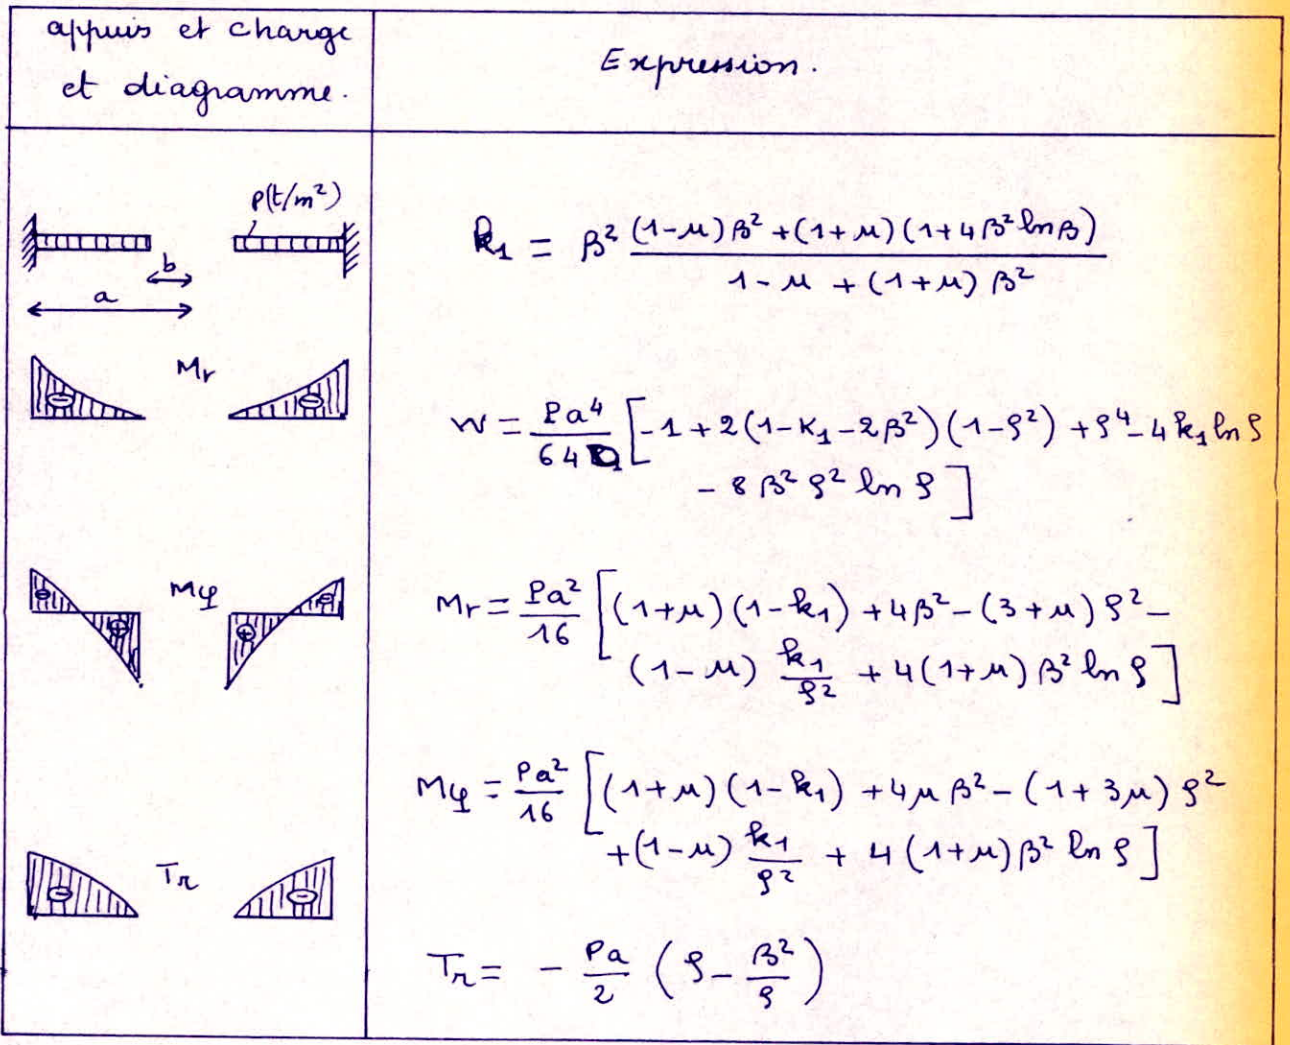 appuis et charge
et diagramme.
Expression.
p(t/m²)
b
a
k₁ = β² ((1-μ)β² + (1+μ)(1+4β² ln β)) / (1-μ + (1+μ)β²)
Mr
w = Pa⁴/64D [-1 + 2(1-K₁-2β²)(1-ρ²) + ρ⁴ - 4k₁ ln ρ
- 8β²ρ² ln ρ]
Mφ
Mr = Pa²/16 [(1+μ)(1-k₁) + 4β² - (3+μ)ρ² -
(1-μ) k₁/ρ² + 4(1+μ)β² ln ρ]
Mφ = Pa²/16 [(1+μ)(1-k₁) + 4μβ² - (1+3μ)ρ²
+ (1-μ) k₁/ρ² + 4(1+μ)β² ln ρ]
Tr
Tr = - Pa/2 (ρ - β²/ρ)